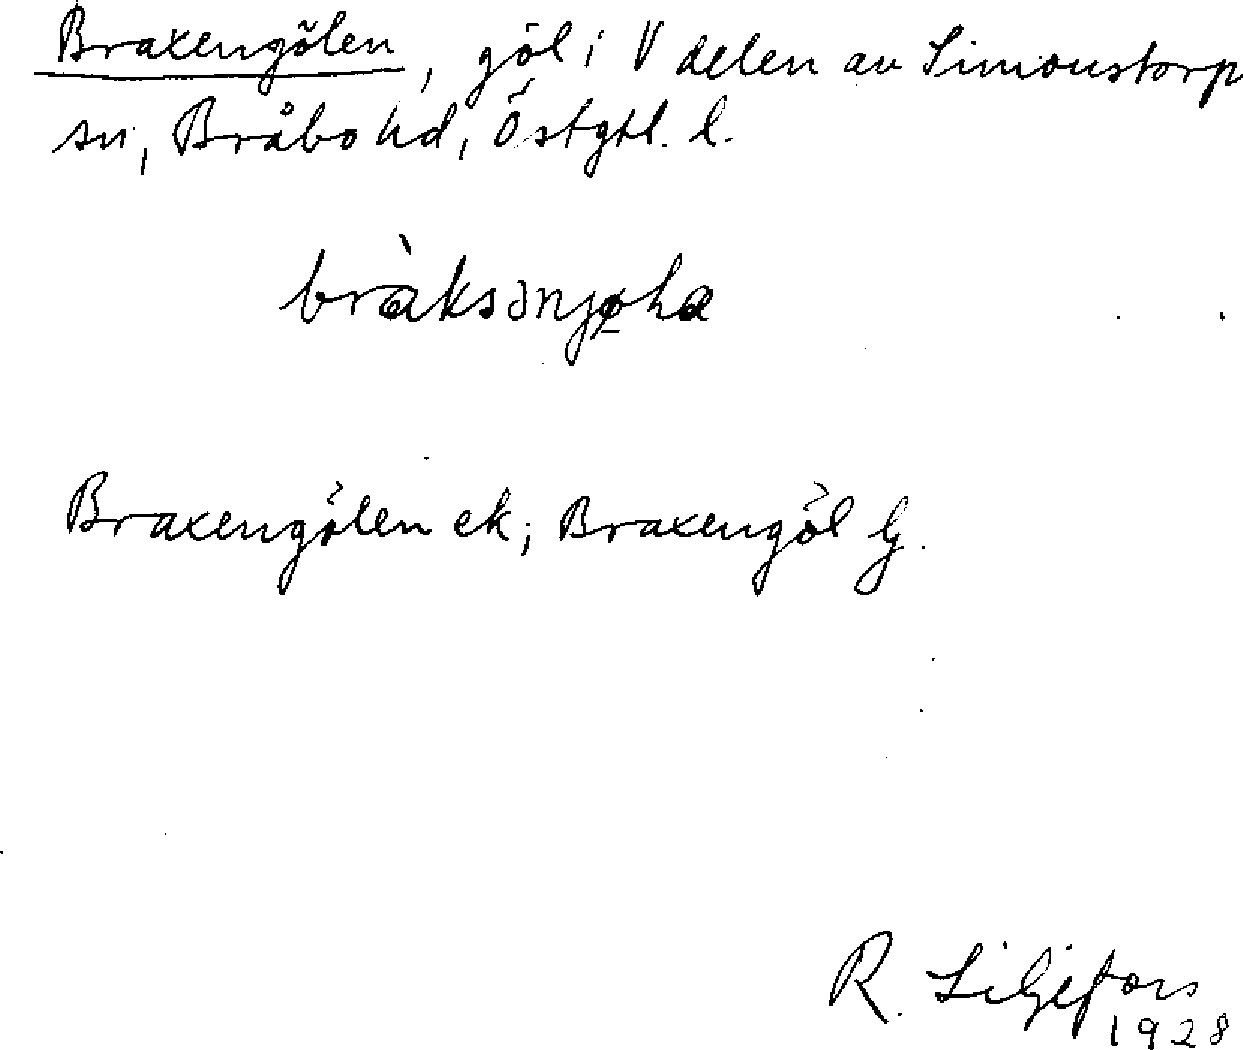 Braxengölen, göl i V delen av Simonstorp
sn, Bråbo hd, Östgtl. l.
bràksənjøha
Braxengölen ek; Braxengöl
R. Liljefors
1928